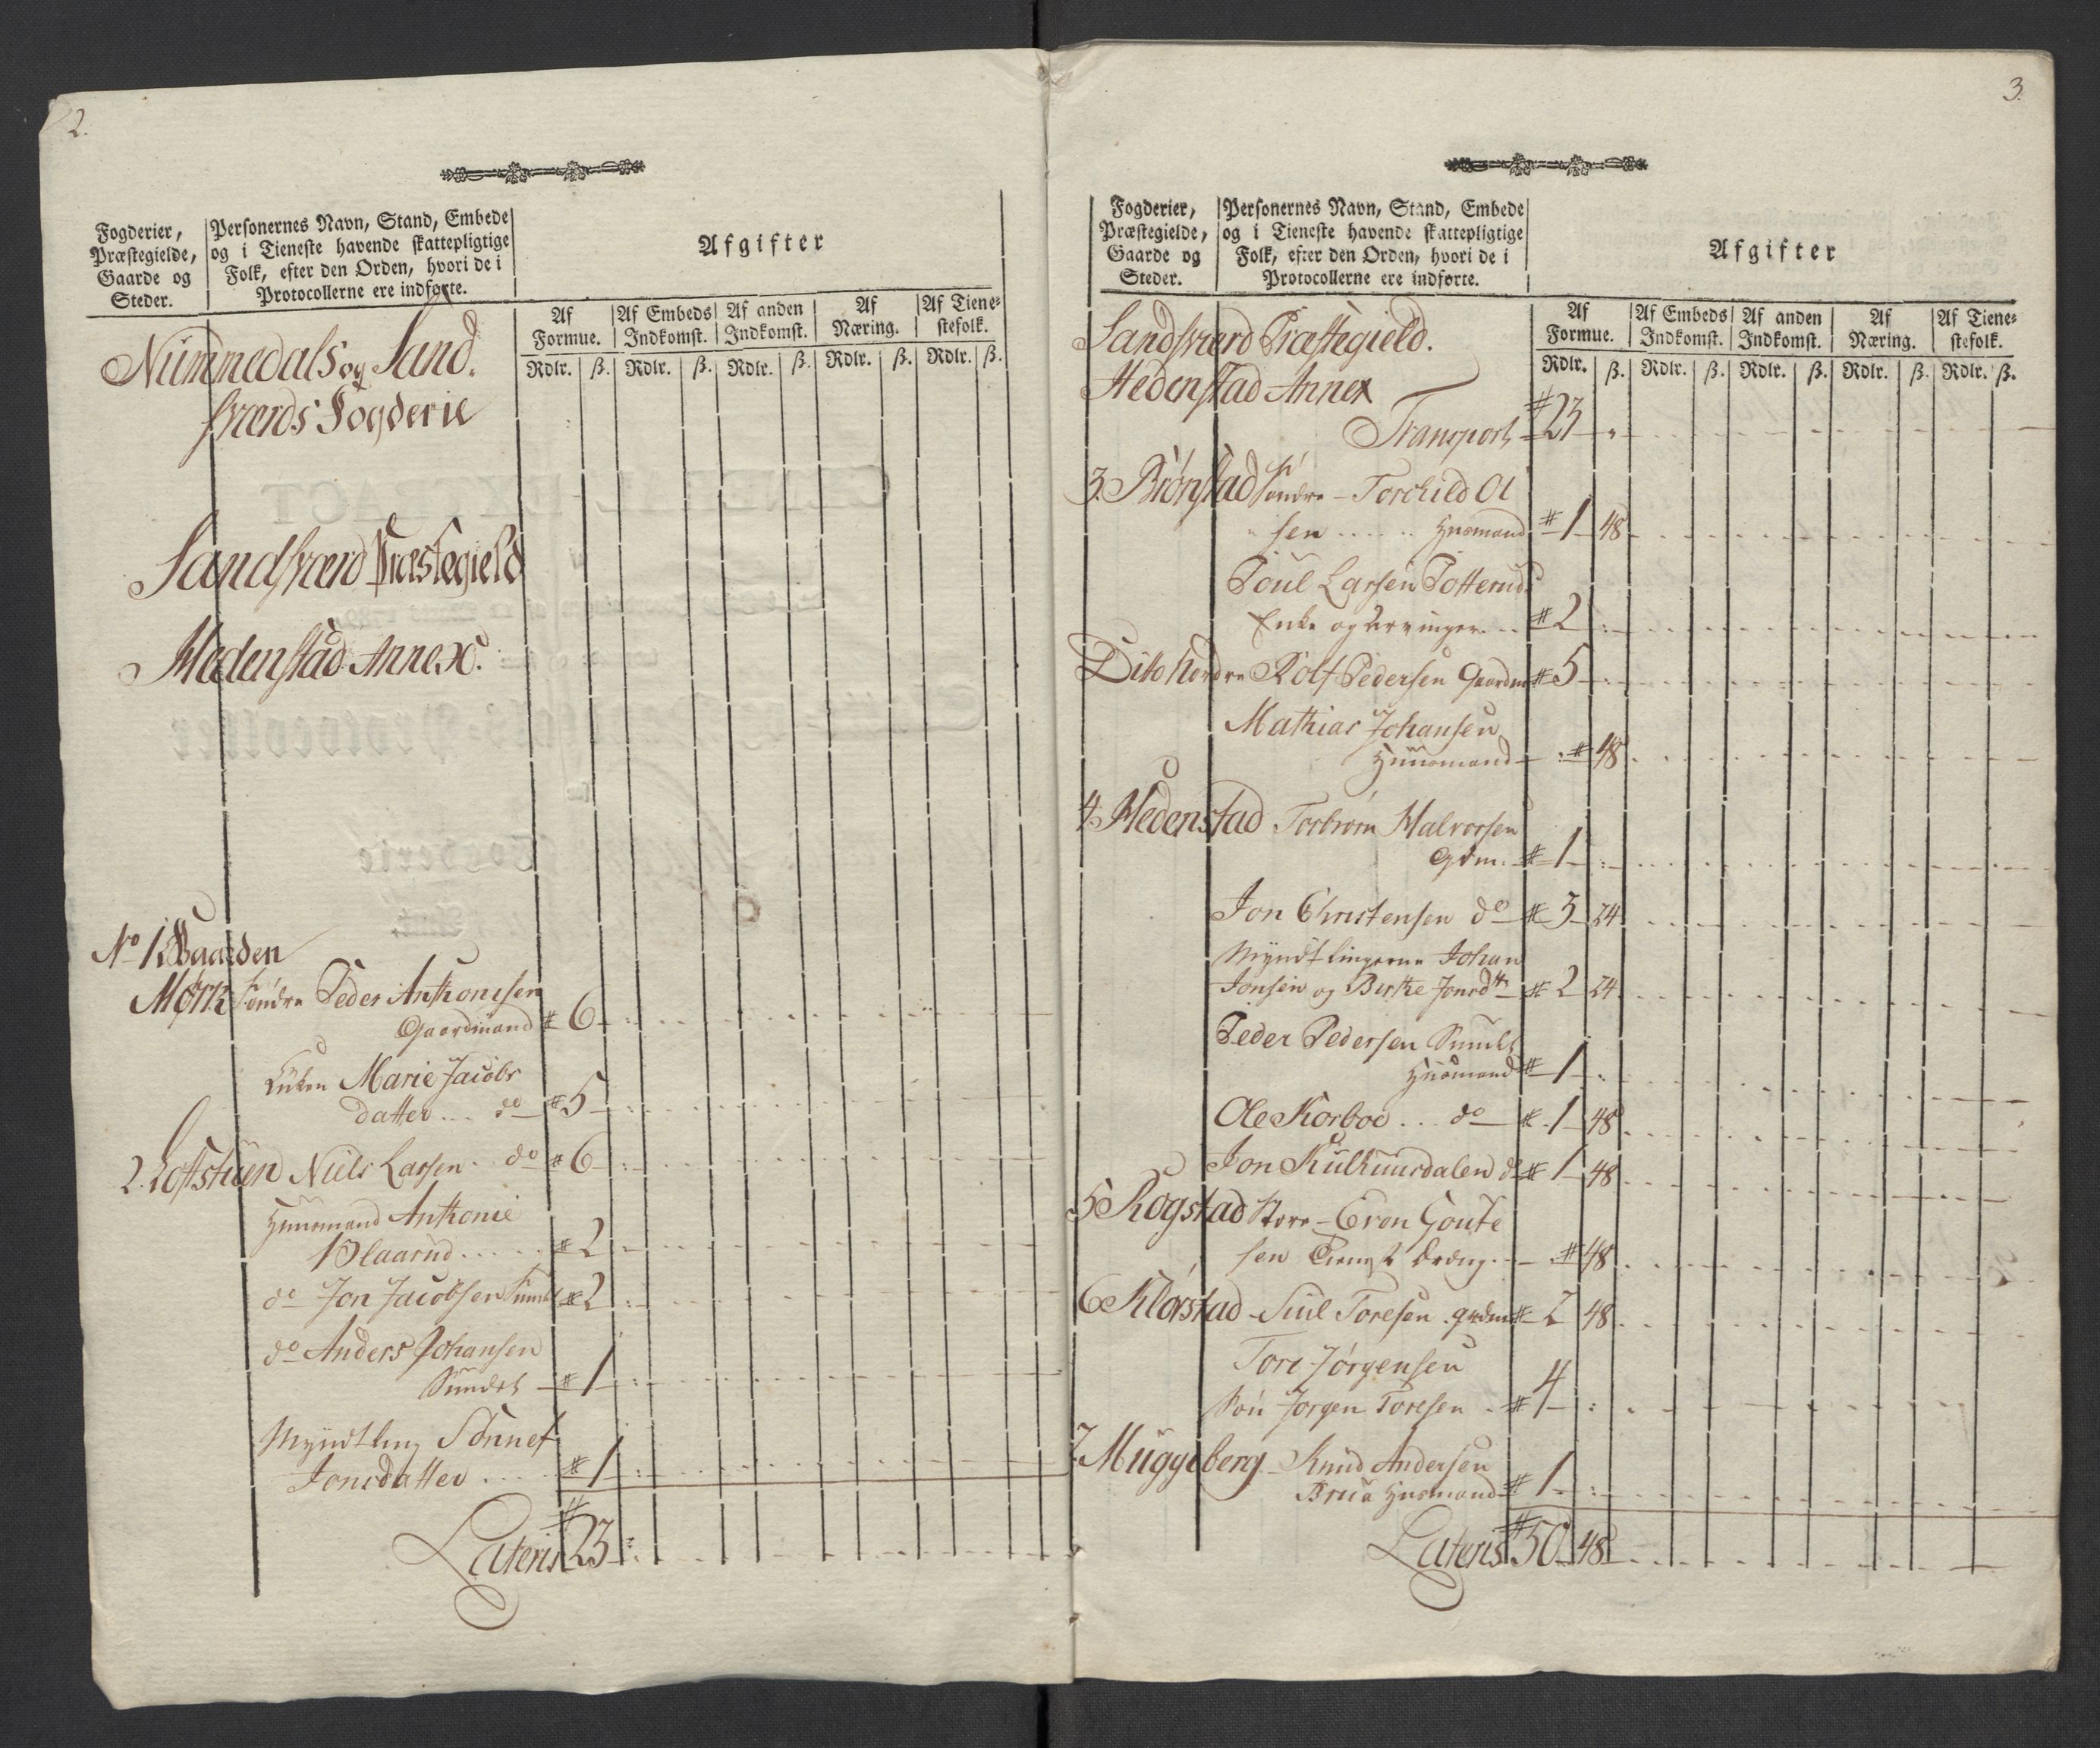 2.
Fogderier,
Præstegielde,
Gaarde og
Steder.
Personernes Navn, Stand, Embede
og i Tieneste havende skattepligtige
Folk, efter den Orden, hvori de i
Protocollerne ere indførte.
Afgifter
Af Formue. Af Embeds Indkomst. Af anden Indkomst. Af Næring. Af Tiene-stefolk.
Rdlr. ß. Rdlr. ß. Rdlr. ß. Rdlr. ß. Rdlr. ß.
Nummedals og Sand-
sværds Fogderie
Sandsværd Præstegield
Hedenstad Annex.
No 1 Gaarden
Mørk søndre Peder Anthonisen
Gaardmand # 6
Enken Marie Jacobs
datter ... do # 5
2. Loftstuen Niels Larsen do # 6
Huusmand Anthonie
Blaarud ..... # 2
do Jon Jacobsen # 2
do Anders Johansen
Sundet # 1
Myndtling Sønnef
Jonsdatter .... # 1
Lateris # 23
3.
Fogderier,
Præstegielde,
Gaarde og
Steder.
Personernes Navn, Stand, Embede
og i Tieneste havende skattepligtige
Folk, efter den Orden, hvori de i
Protocollerne ere indførte.
Afgifter
Af Formue. Af Embeds Indkomst. Af anden Indkomst. Af Næring. Af Tiene-stefolk.
Rdlr. ß. Rdlr. ß. Rdlr. ß. Rdlr. ß. Rdlr. ß.
Sandsværd Præstegield.
Hedenstad Annex
Transport # 23
3. Biørnstad søndre - Torchild Ol
sen ..... Husmand # 1 48
Poul Larsen Potterud
Enke og Arvinger ... # 2
Dito Nordre Rolf Pedersen Gaardm # 5
Mathias Johansen
Huusmand # 48
4. Hedenstad Torbiørn Halvorsen
Gdm. # 1
Jon Christensen do # 5 24
Myndtlingerne Johan
Jonsen og Birthe Jonsdtr # 2 24
Peder Pedersen Sundet
Husmand # 1
Ole Korboe ... do # 1 48
Jon Kulhuusdalen do # 1 48
5 Rogstad Store - Even Goute
sen Tienest Dreng # 48
6 Kløvstad Siul Toresen grdm # 2 48
Tore Jørgensen
Søn Jørgen Toresen # 4
7. Muggeberg - Knud Andersen
Brua Husmand # 1
Lateris # 50 48